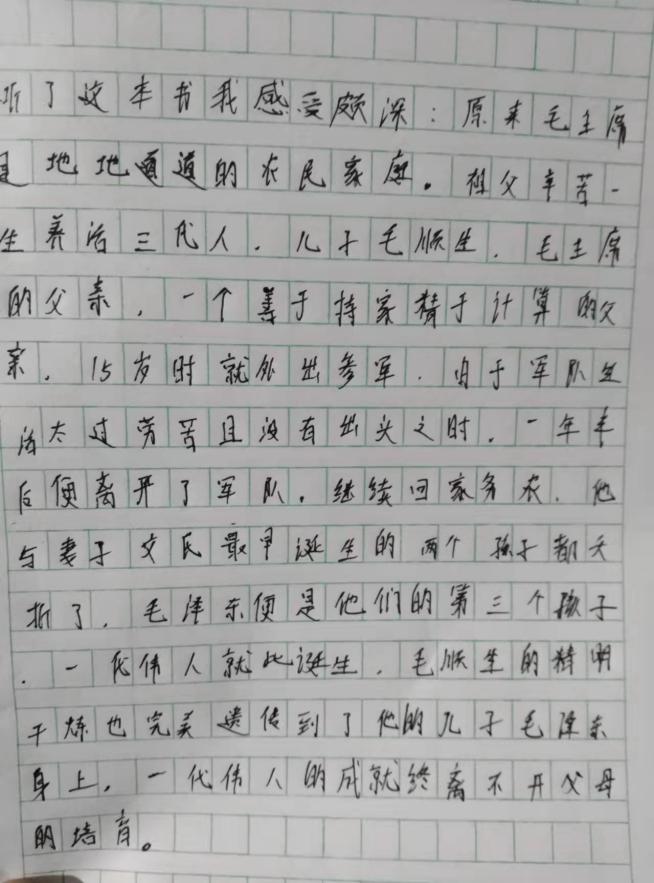 听了这本书我感受颇深：原来毛主席
是地地道道的农民家庭。祖父辛苦一
生养活三代人，儿子毛顺生，毛主席
的父亲，一个善于持家精于计算的父
亲。15岁时就外出参军，由于军队生
活太过劳苦且没有出头之时，一年半
后便离开了军队，继续回家务农，他
与妻子文氏最早诞生的两个孩子都夭
折了，毛泽东便是他们的第三个孩子
，一代伟人就此诞生，毛顺生的精明
干炼也完美遗传到了他的儿子毛泽东
身上，一代伟人的成就终离不开父母
的培育。